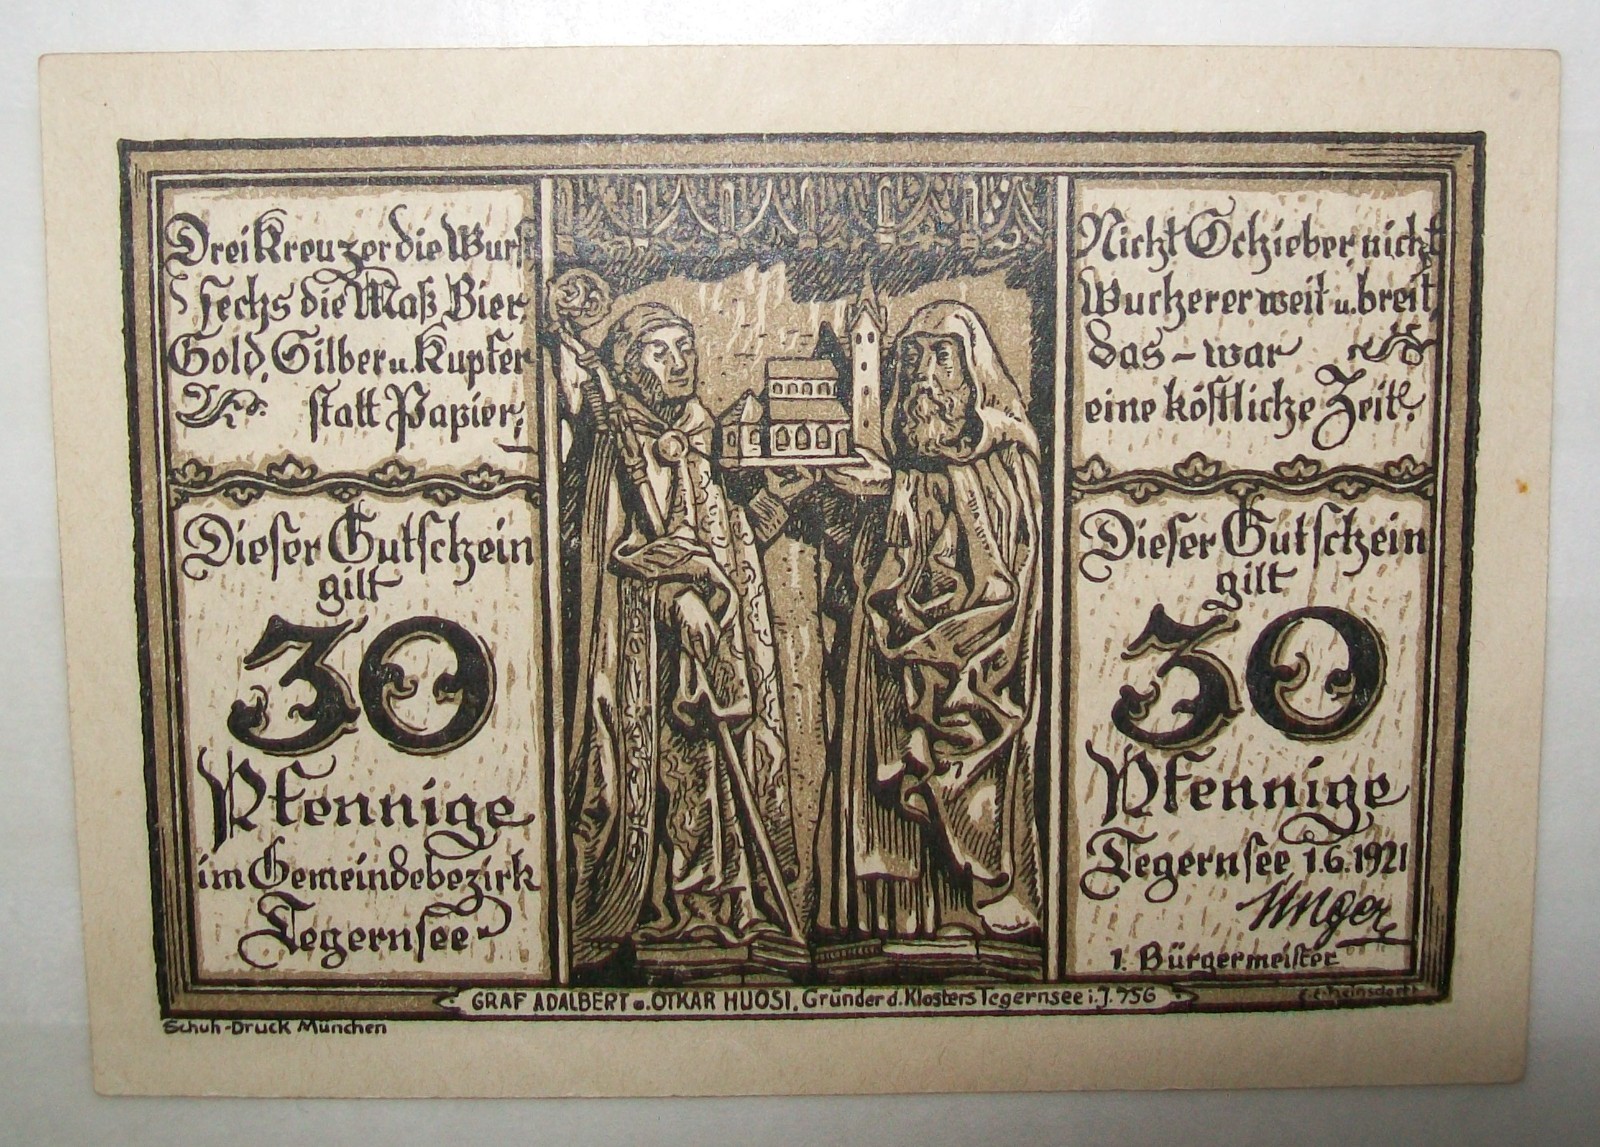 Drei Kreuzer die Wurst
sechs die Maß Bier,
Gold, Silber u. Kupfer
statt Papier,
Dieser Gutschein
gilt
30
Pfennige
im Gemeindebezirk
Tegernsee
Nicht Schieber, nicht
Wucherer weit u. breit,
das – war
eine köstliche Zeit.
Dieser Gutschein
gilt
30
Pfennige
Tegernsee 1.6.1921
Unger
1. Bürgermeister
GRAF ADALBERT u. OTKAR HUOSI, Gründer d. Klosters Tegernsee i. J. 756
Heinsdorff
Schuh-Druck München